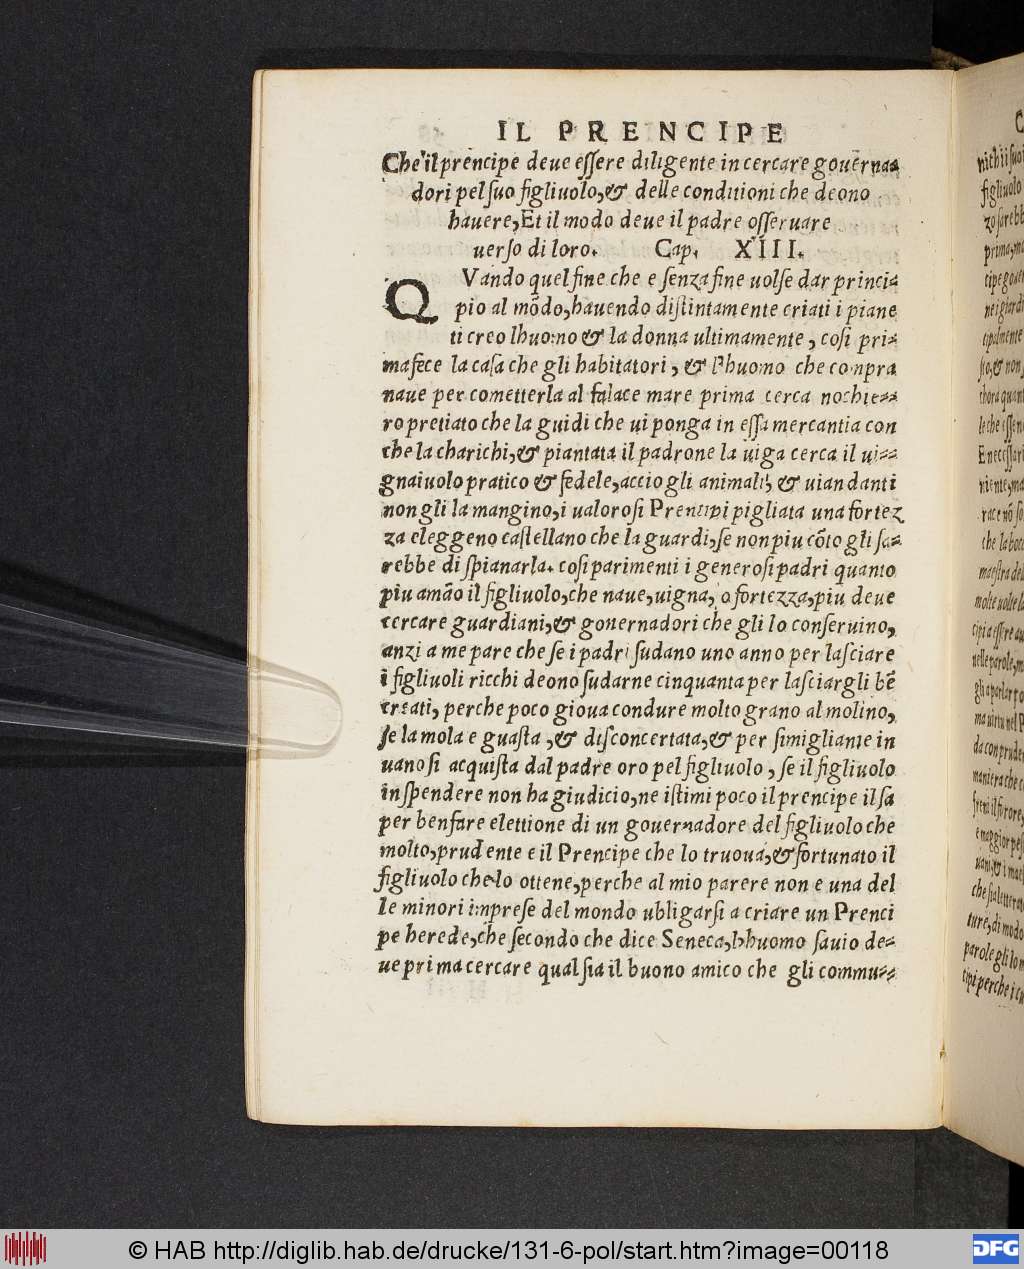 IL PRENCIPE
Che il prencipe deue eſſere diligente in cercare gouerna-
dori pel ſuo figliuolo, & delle conditioni che deono
hauere, Et il modo deue il padre oſſeruare
uerſo di loro. Cap. XIII.
QVando quel fine che e ſenza fine uolſe dar princi-
pio al mõdo, hauendo diſtintamente criati i piane
ti creo lhuomo & la donna ultimamente, coſi pri-
ma fece la caſa che gli habitatori, & lhuomo che compra
naue per cometterla al falace mare prima cerca nochie-
ro pretiato che la guidi che ui ponga in eſſa mercantia con
che la charichi, & piantata il padrone la uiga cerca il ui-
gnaiuolo pratico & fedele, accio gli animali, & uiandanti
non gli la mangino, i ualoroſi Prencipi pigliata una fortez
za eleggeno caſtellano che la guardi, ſe non piu cõto gli ſa-
rebbe di ſpianarla. coſi parimenti i generoſi padri quanto
piu amão il figliuolo, che naue, uigna, o fortezza, piu deue
cercare guardiani, & gonernadori che gli lo conſeruino,
anzi a me pare che ſe i padri ſudano uno anno per laſciare
i figliuoli ricchi deono ſudarne cinquanta per laſciargli bẽ
creati, perche poco gioua condure molto grano al molino,
ſe la mola e guaſta, & diſconcertata, & per ſimigliante in
uano ſi acquiſta dal padre oro pel figliuolo, ſe il figliuolo
in ſpendere non ha giudicio, ne iſtimi poco il prencipe il ſa
per ben fare elettione di un gouernadore del figliuolo che
molto, prudente e il Prencipe che lo truoua, & fortunato il
figliuolo che lo ottene, perche al mio parere non e una del
le minori impreſe del mondo ubligarſi a criare un Prenci
pe herede, che ſecondo che dice Seneca, lhuomo ſauio de-
ue prima cercare qual ſia il buono amico che gli commu-
© HAB http://diglib.hab.de/drucke/131-6-pol/start.htm?image=00118
DFG